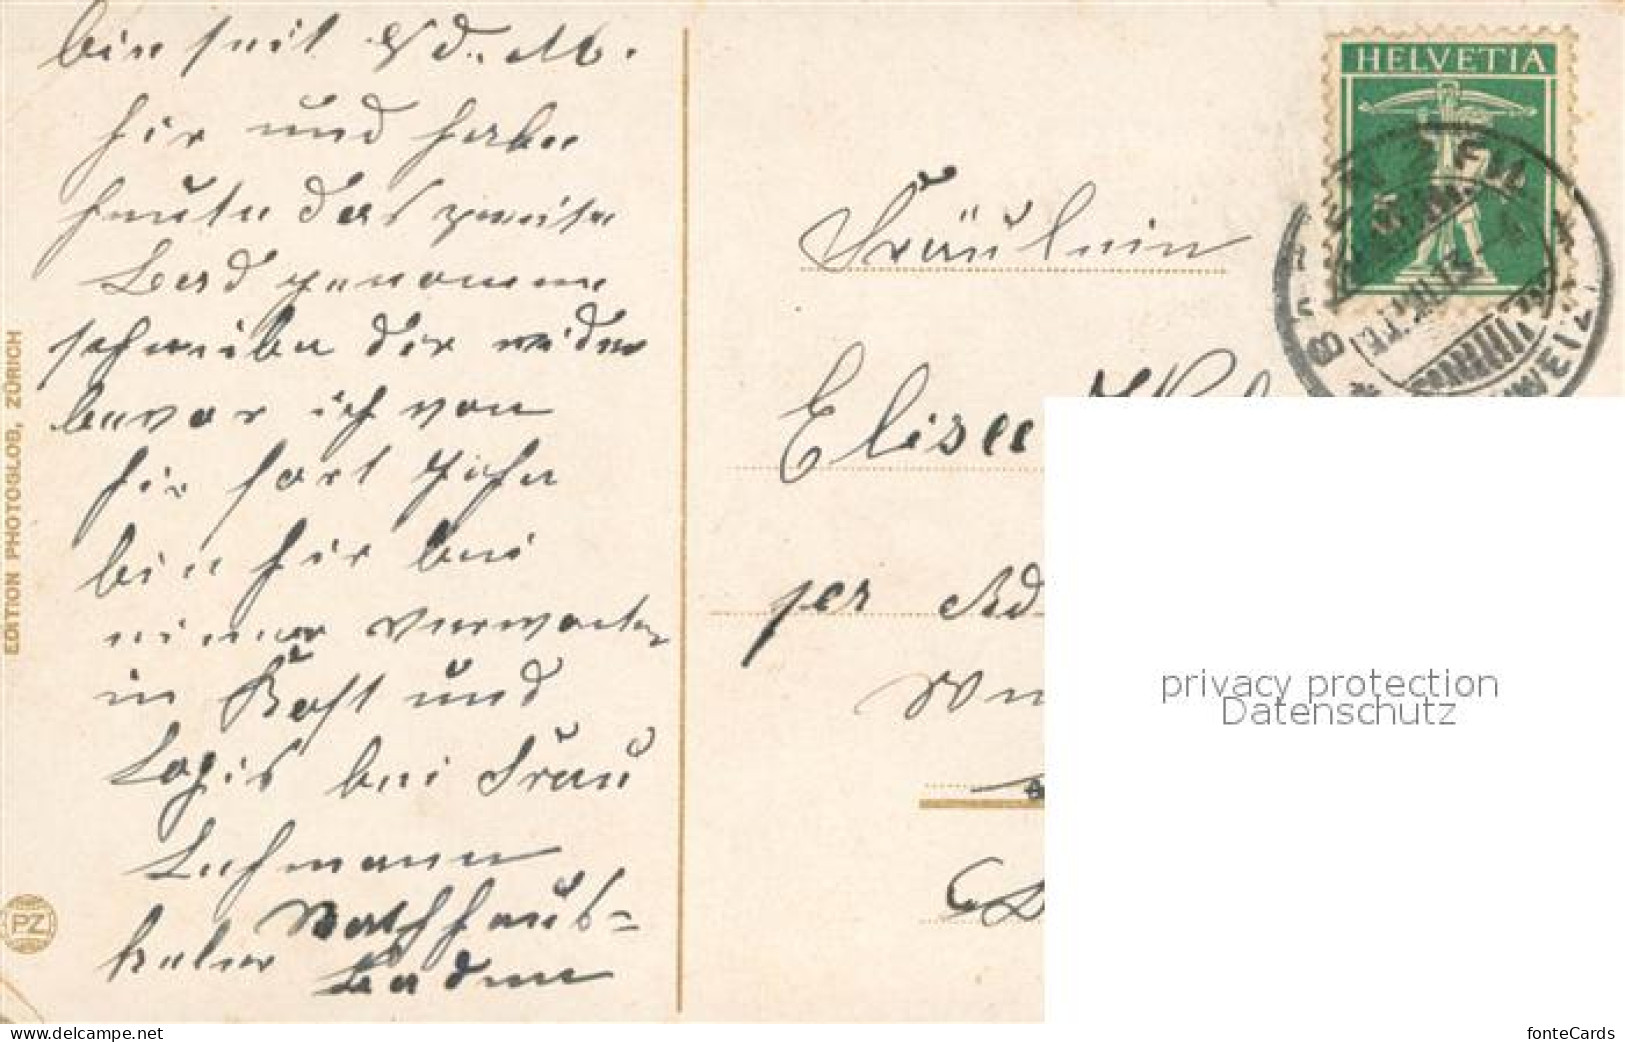 bin seit d. M.
hir und habe
heute das zweite
Bad genomme
schreibe dir wider
bevor ich von
hir fort gehe
bin hir bei
einer verwanten
in Kost und
Logis bei Frau
Lehmann
Rathhaus=
keler Baden
EDITION PHOTOGLOB, ZÜRICH
PZ
HELVETIA
5
Fräulein
Elise
per Ad
privacy protection
Datenschutz
www.delcampe.net
fonteCards